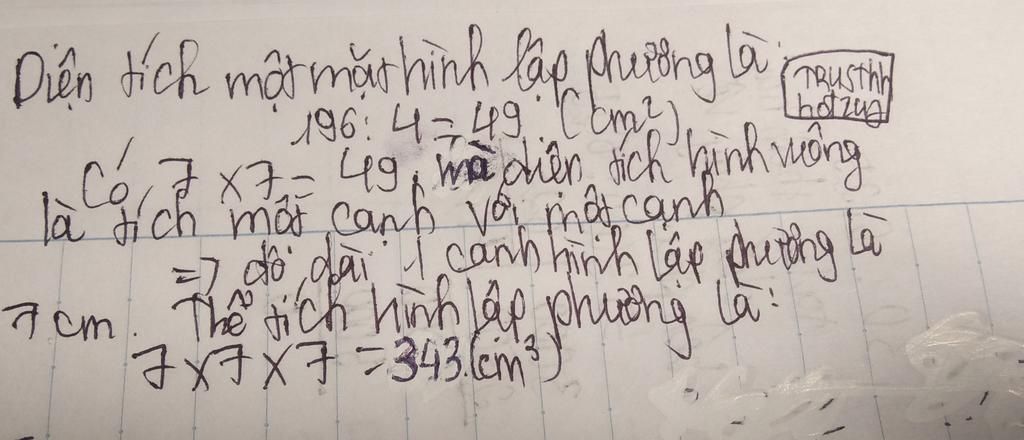 Diện tích một mặt hình lập phương là:
Trusthh
hotzug
196: 4 = 49 (cm²)
Có 7 x 7 = 49, mà diện tích hình vuông
là tích một cạnh với một cạnh
=> độ dài 1 cạnh hình lập phương là
7 cm. Thể tích hình lập phương là:
7 x 7 x 7 = 343 (cm³)